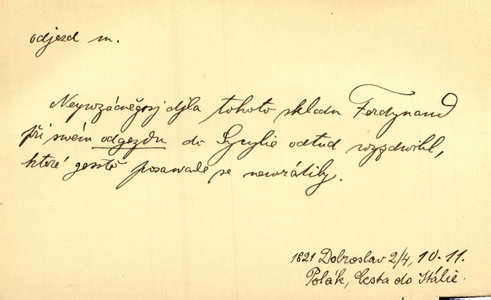 odjezd m.
Neywzácněgsj djla tohoto skladu Ferdynand
při swém odgezdu do Sycylie odtud wyzdwihl,
které gesstě posawad se newrátily.
1821 Dobroslav 2/4, 10-11.
Polák, Cesta do Itálie.